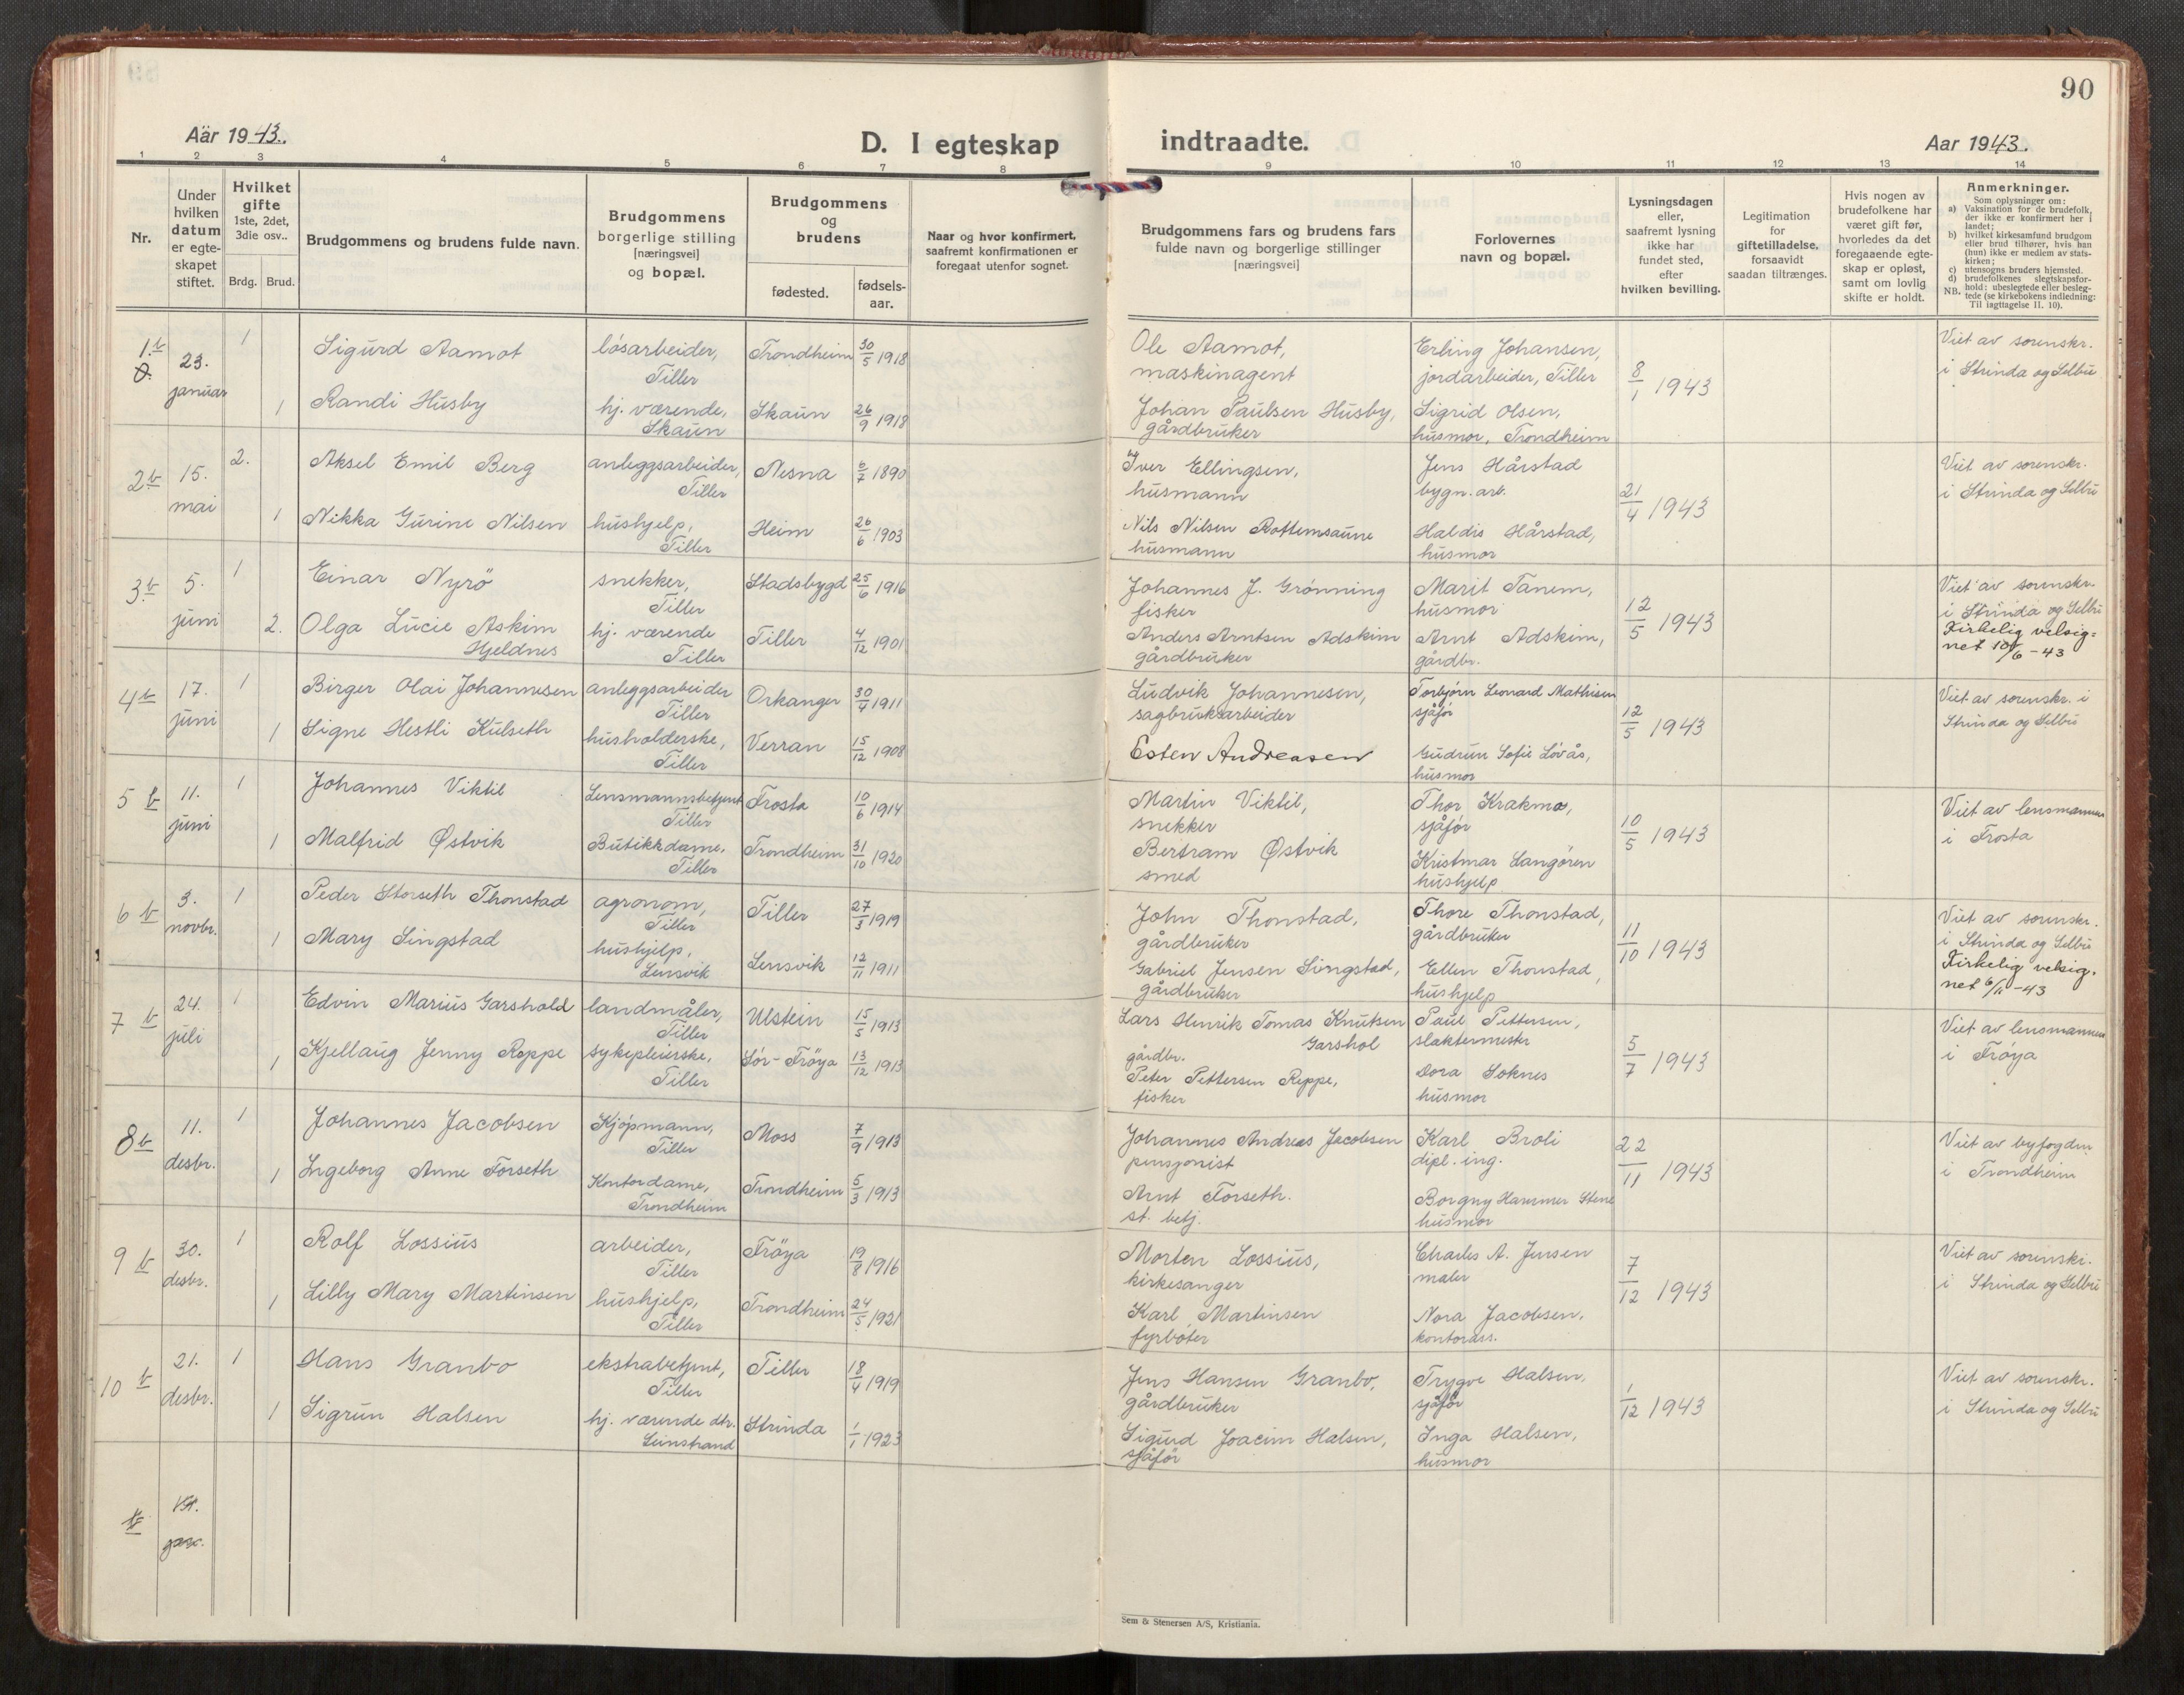 90
Aar 1943.
D. I egteskap
indtraadte.
Aar 1943.
1 2 3 4 5 6 7 8 9 10 11 12 13 14
Nr.
Under
hvilken
datum
er egte-
skapet
stiftet.
Hvilket
gifte
1ste, 2det,
3die osv..
Brdg. Brud.
Brudgommens og brudens fulde navn.
Brudgommens
borgerlige stilling
[næringsvei]
og bopæl.
Brudgommens
og
brudens
fødested.
fødsels-
aar.
Naar og hvor konfirmert,
saafremt konfirmationen er
foregaat utenfor sognet.
Brudgommens fars og brudens fars
fulde navn og borgerlige stillinger
[næringsvei]
Forlovernes
navn og bopæl.
Lysningsdagen
eller,
saafremt lysning
ikke har
fundet sted,
efter
hvilken bevilling.
Legitimation
for
giftetilladelse,
forsaavidt
saadan tiltrænges.
Hvis nogen av
brudefolkene har
været gift før,
hvorledes da det
foregaaende egte-
skap er opløst,
samt om lovlig
skifte er holdt.
Anmerkninger.
Som oplysninger om:
a) Vaksination for de brudefolk,
der ikke er konfirmert her i
landet;
b) hvilket kirkesamfund brudgom
eller brud tilhører, hvis han
(hun) ikke er medlem av stats-
kirken;
c) utensogns bruders hjemsted.
d) brudefolkenes slegtskapsfor-
hold: ubeslegtede eller besleg-
NB. tede (se kirkebokens indledning:
Til iagttagelse II. 10).
1.b 23. januar 1 Sigurd Aamot løsarbeider, Tiller Trondheim 30/5 1918
Ole Aamot, maskinagent Erling Johansen, jordarbeider, Tiller 8/1 1943 Viet av sorenskr. i Strinda og Selbu
1 Randi Husby hj. værende, Skaun Skaun 26/9 1918
Johan Paulsen Husby, gårdbruker Sigrid Olsen, husmor, Trondheim
2 b 15. mai 2. Aksel Emil Berg anleggsarbeider, Tiller Nesna 6/7 1890
Iver Ellingsen, husmann Jens Hårstad bygn. arb. 21/4 1943 Viet av sorenskr. i Strinda og Selbu
1 Nikka Gurine Nilsen hushjelp, Tiller Heim 26/6 1903
Nils Nilsen Rottemsaune husmann Haldis Hårstad, husmor
3 b 5. juni 1 Einar Nyrö snekker, Tiller Stadsbygd 25/6 1916
Johannes J. Grønning fisker Marit Tanem, husmor 12/5 1943 Viet av sorenskr. i Strinda og Selbu
2. Olga Lucie Askim Hjeldnes hj. værende Tiller Tiller 4/12 1901
Anders Arntsen Adskim gårdbruker Arnt Adskim, gårdbr. Kirkelig velsig= net 10/6-43
4 b 17. juni 1 Birger Olai Johannesen anleggsarbeider Tiller Orkanger 30/4 1911
Ludvik Johannesen, sagbruksarbeider Torbjørn Leonard Mathisen sjåfør 12/5 1943 Viet av sorenskr. i Strinda og Selbu
1 Signe Hestli Kulseth husholderske, Tiller Verran 15/12 1908
Esten Andreasen Gudrun Sofie Løvås, husmor
5 b 11. juni 1 Johannes Viktil Lensmannsbetjent Tiller Frosta 10/6 1914
Martin Viktil, snekker Thor Krakmo, sjåfør 10/5 1943 Viet av lensmannen i Frosta
1 Malfrid Østvik Butikkdame, Tiller Trondheim 31/10 1920
Bertram Østvik smed Kristmar Langören hushjelp
6 b 3. novbr. 1 Peder Storseth Thonstad agronom, Tiller Tiller 27/3 1919
John Thonstad, gårdbruker Thore Thonstad, gårdbruker 11/10 1943 Viet av sorenskr. i Strinda og Selbu
1 Mary Singstad hushjelp, Lensvik Lensvik 12/11 1911
Gabriel Jensen Singstad, gårdbruker Ellen Thonstad, hushjelp Kirkelig velsig. net 6/11-43
7 b 24. juli 1 Edvin Marius Garshold landmåler, Tiller Ulstein 15/5 1913
Lars Henrik Tomas Knutsen Garshol gårdbr. Paul Pettersen, slaktermester 5/7 1943 Viet av lensmannen i Frøya
1 Kjellaug Jenny Reppe sykepleierske, Tiller Sør-Frøya 13/12 1913
Peter Pettersen Reppe, fisker Dora Soknes husmor
8 b 11. desbr. 1 Johannes Jacobsen Kjøpmann, Tiller Moss 7/9 1913
Johannes Andreas Jacobsen pensjonist Karl Broli dipl. ing. 22/11 1943 Viet av byfogden i Trondheim
1 Ingeborg Anne Forseth Kontordame, Trondheim Trondheim 5/3 1913
Arnt Forseth. st. betj. Borgny Hammer Stene husmor
9 b 30. desbr. 1 Rolf Lossius arbeider, Tiller Fröya 19/8 1916
Morten Lossius, kirkesanger Charles A. Jensen maler 7/12 1943 Viet av sorenskr. i Strinda og Selbu
1 Lilly Mary Martinsen hushjelp, Tiller Trondheim 24/5 1921
Karl Martinsen fyrbøter Nora Jacobsen, kontorass.
10 b 21. desbr. 1 Hans Granbo ekstrabetjent, Tiller Tiller 18/4 1919
Jens Hansen Granbo, gårdbruker Trygve Halsen, sjåfør 1/12 1943 Viet av sorenskr. i Strinda og Selbu
1 Sigrun Halsen hj. værende dtr. Leinstrand Strinda 1/1 1923
Sigurd Joacim Halsen, sjåfør Inga Halsen, husmor
Sem & Stenersen A/S, Kristiania.